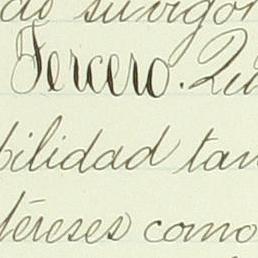 do su vigor
Tercero. Qu
bilidad tan
téreses como